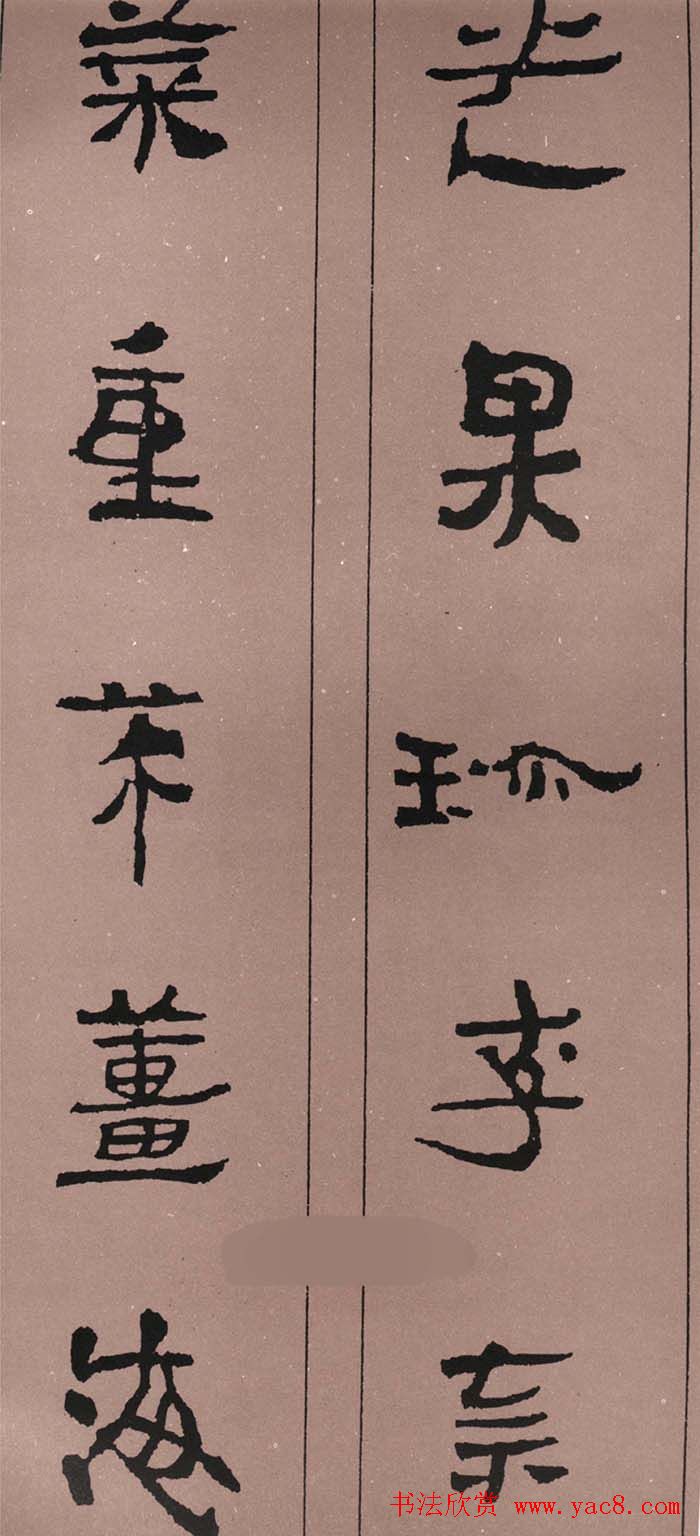 光果珍李奈
菜重芥薑海
书法欣赏 www.yac8.com